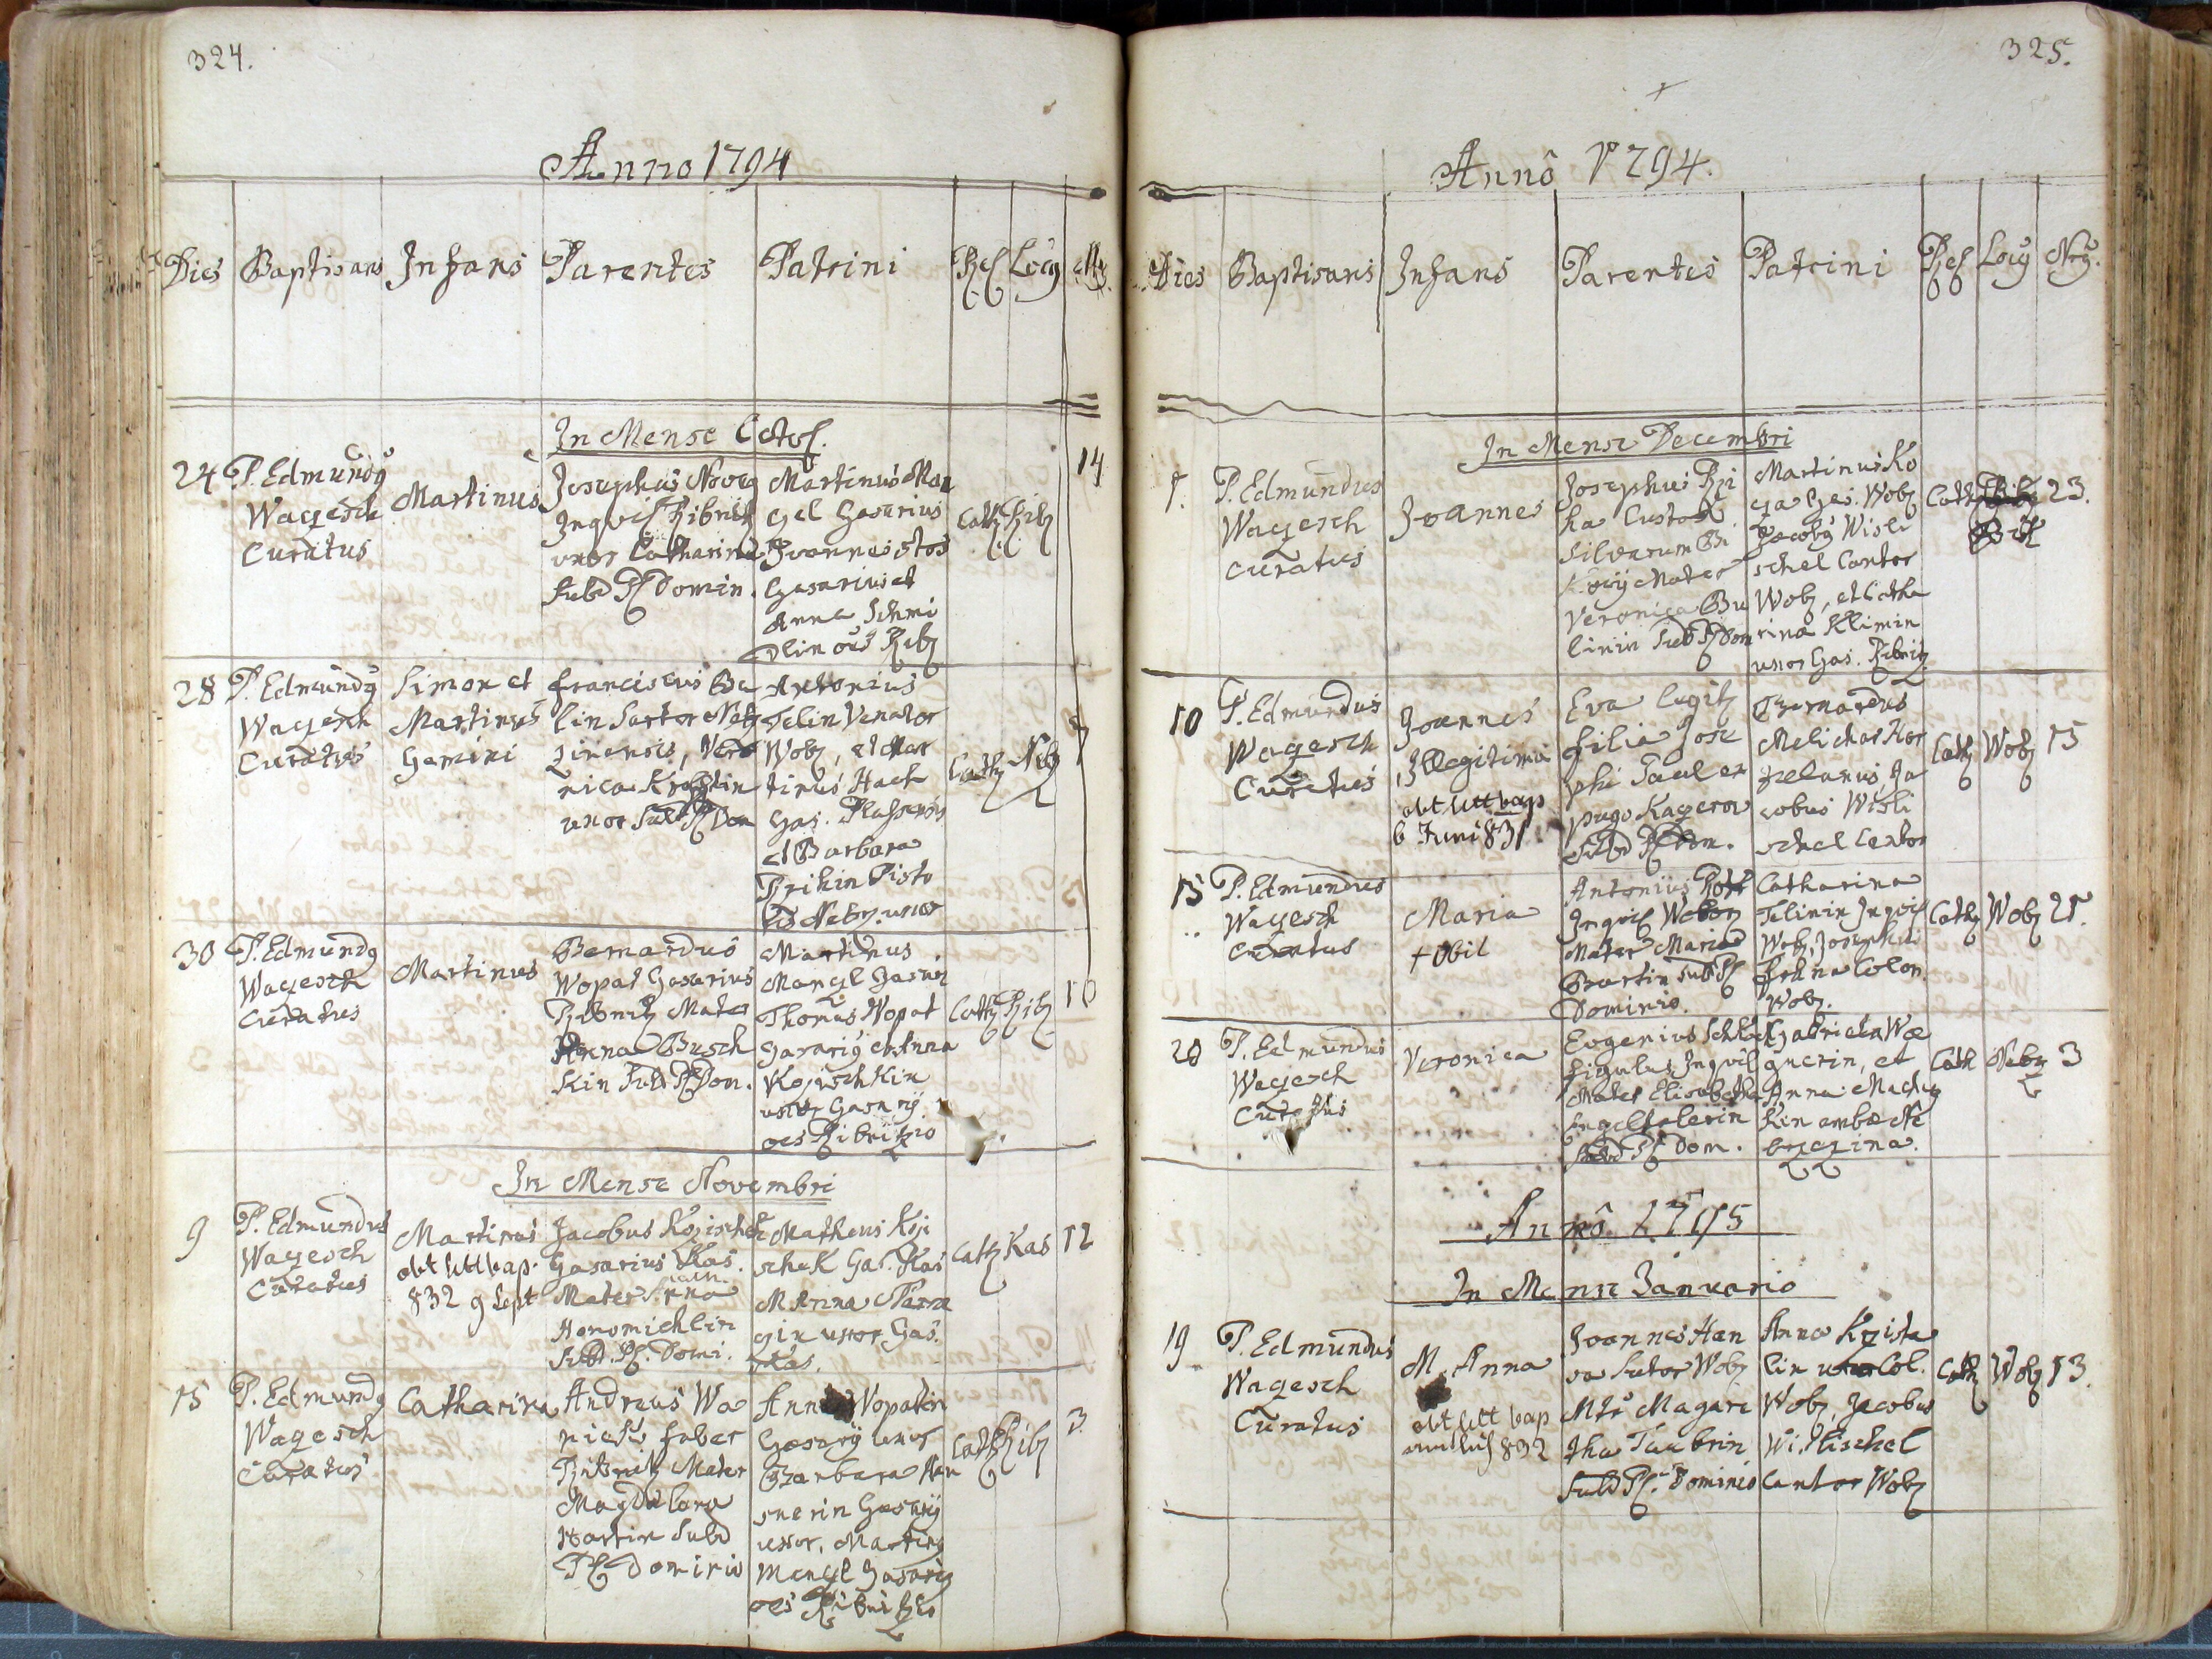 324.
Anno 1794
Dies Baptisans Infans Parentes Patrini Rel Locy
In Mense Octob.
24 P. Edmundy
Wagesch
Curatus
Martinus
Josephus
uxor Catharina
Subd Pl Domin.
Martinus Man
gel Gasarius
Joannes
Gasarius et
Anna Schmi
dlin oes Ribz
Cath Ribz
14
28 P. Edmundy
Wagesch
Curatus
Simon et
Martinus
Gemini
Franciscus Be
lin Sartor Neb
zinensis, Vero
nica
uxor Subd Pl Dom
Antonius
Telin Venator
Wobz, et Mar
tinus Hach
Gas.
et Barbara
Pisto
ris Nebz. uxor
Cath Nebz
7
30 P. Edmundy
Wagesch
Curatus
Martinus
Bernardus
Wopat Gasarius
Ribnitz Mater
Anna Busch
kin Subd Pl Dom.
Martinus
Mangl Gasariy
Thomas Wopat
Gasariy et Anna
Kozischkin
uxor Gasarij
oes Ribnitzio
Cath Ribz
10
In Mense Novembri
9
P. Edmundus
Wagesch
Curatus
Martinus
obt litt bap.
832 9 Sept
Jacobus Kozischek
Gasarius Kas.
Mater Anna
Honomichlin
Subd. Pl. Domi.
Matheus Kozi
schek Gas. Kas
M Anna
gin uxor Gas.
Kas.
Cath Kas
12
15
P. Edmundy
Wagesch
Curatus
Catharina
Andreas Wa
faber
Ribnitz Mater
Magdalena
Hartin Subd
Pl Dominio
Anna Wopatin
Gasarij uxor
Barbara Han
snerin Gasarij
uxor, Martiny
Mangl Gasariy
oes Ribnitzio
Cath Ribz
3
325.
Annô 1794.
Dies Baptisans Infans Parentes Patrini Rel Locy Nrg.
In Mense Decembri
7.
P. Edmundus
Wagesch
Curatus
Joannes
Josephus Rzi
ha Custos
Silvarum Bu
Mater
Veronica Bu
linin Subd Pl Dom
Martinus Ko
za Gas. Wobz
Jacoby Wisli
schel Cantor
Wobz, et Catha
rina Klimin
uxor Gas. Ribnitz
Cath
23.
10
P. Edmundus
Wagesch
Curatus
Joannes
Illegitimi
obt litt bap
6 Juni 831.
Eva legitz
filia Jose
phi Paul ex
pago Kagerow
Subd Pl Dom.
Bernardus
Melichar Hor
zelanus, Ja
cobus Wisli
schel Cantor
Cath Wobz 15
15
P. Edmundus
Wagesch
Curatus
Maria
+ Obit
Antonius
Inqvil Wobz
Mater Maria
Bartin Subd Pl
Dominio.
Catharina
Telinin Inqvil
Wobz, Josephus
Colon
Wobz.
Cath Wobz 21.
28
P. Edmundus
Wagesch
Curatus
Veronica
Eugenius
figulus Inqvil
Mater Elisabetha
Engelthalerin
Subd Pl Dom.
Gabriela Wa
gnerin, et
Anna
kin ambæ Ne
brzezina.
Cath Nebz 3
Annô 1795
In Mense Januario
19
P. Edmundus
Wagesch
Curatus
M. Anna
obt litt bap
832
Joannes Han
sa Sutor Wobz
Mtr Magare
tha Taubrin
Subd Pl. Dominio
Anna Krzista
lin uxor Col.
Wobz, Jacobus
Wislischel
Cantor Wobz
Cath Wobz 13.